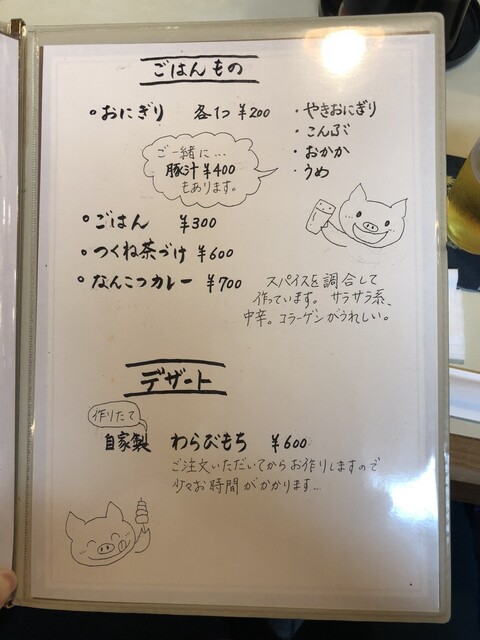 ごはんもの
おにぎり 各1つ ¥200
・やきおにぎり
・こんぶ
・おかか
・うめ
ご一緒に…
豚汁¥400
もあります。
ごはん ¥300
つくね茶づけ ¥600
なんこつカレー ¥700
スパイスを調合して
作っています。サラサラ系、
中辛。コラーゲンがうれしい。
デザート
作りたて
自家製 わらびもち ¥600
ご注文いただいてからお作りしますので
少々お時間がかかります…